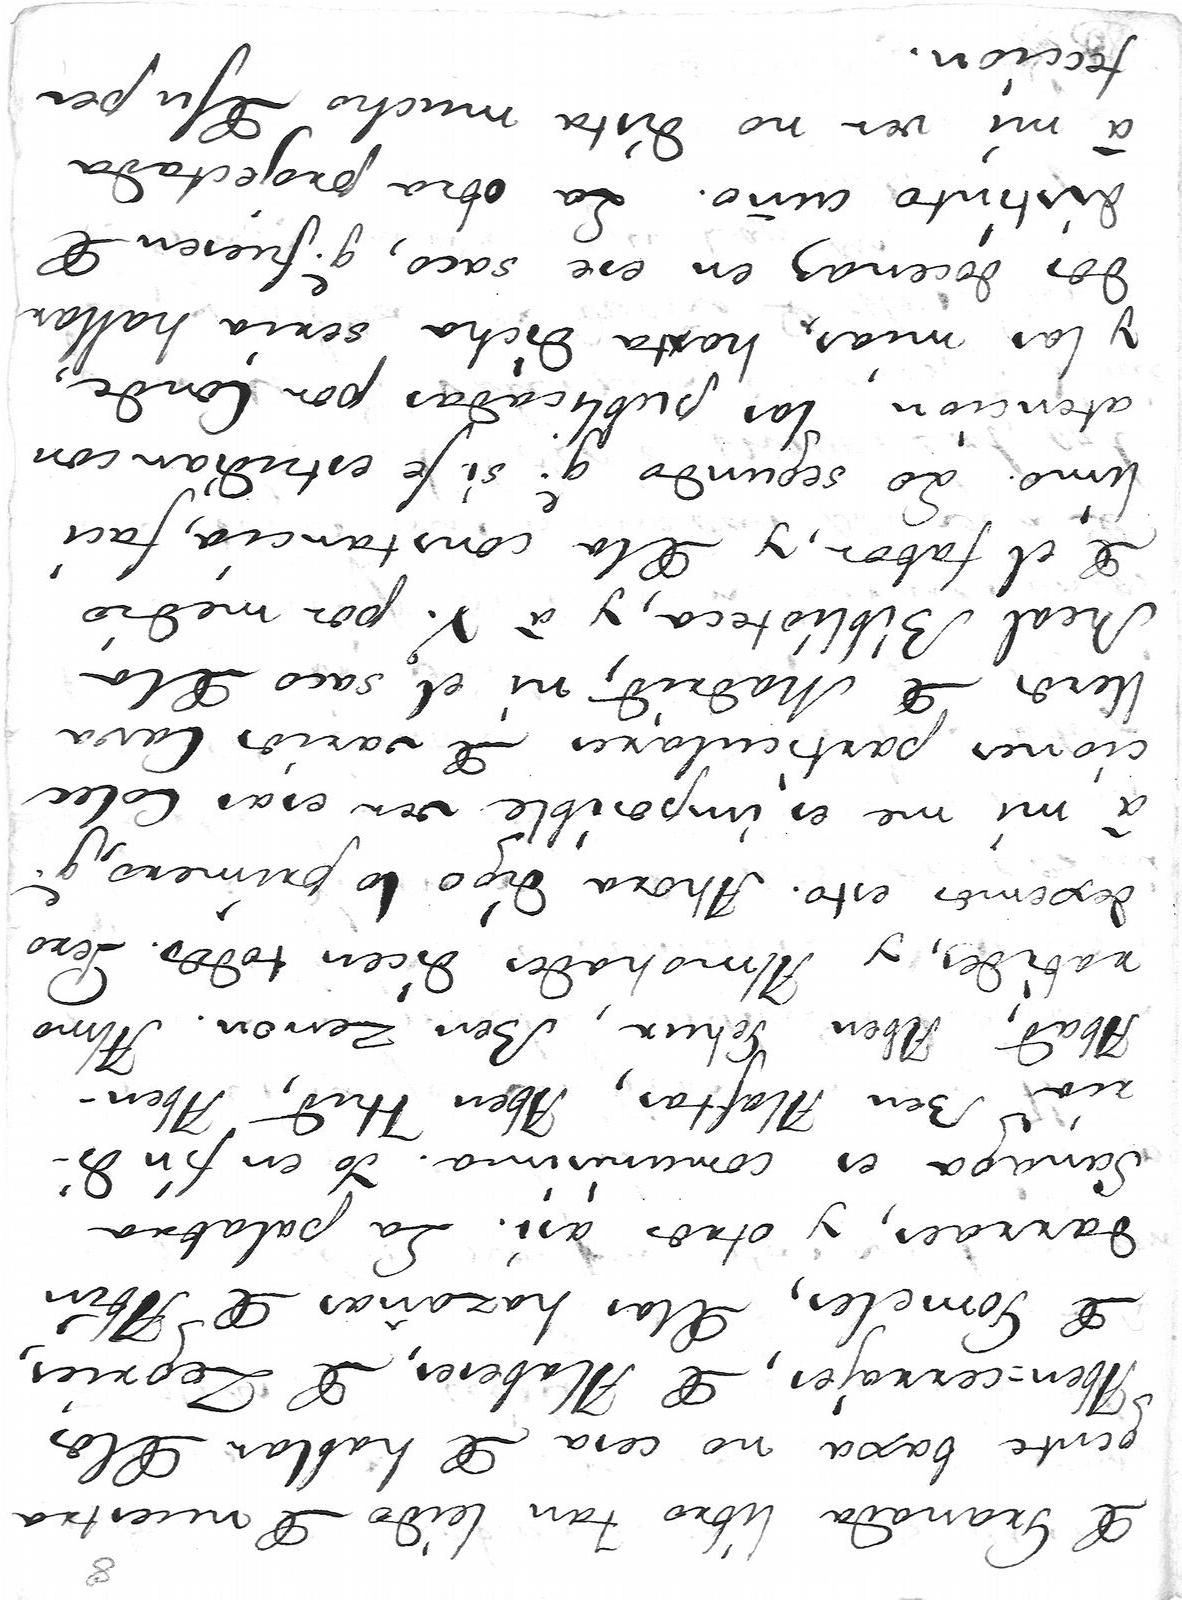 8
de Granada libro tan leido de nuestra
gente baxa no cesa de hablar de los
Aben=cerrajes, de Alabeses, de Zegries,
de Gomeles, de las hazañas de Abin
darraes, y otros asi. La palabra
Sanaga es comunisima. Yo en fin di-
ria q̃ Ben Alaftas, Aben Hud, Aben-
Abad, Aben Zenon. Almo
rabides, y Almohades dicen todos. Pero
dexemos esto. Ahora digo lo primero, q̃.
à mi me es imposible ver esas Colec
ciones particulares de varios Cava
lleros de Madrid, ni el saco de la
Real Biblioteca, y à V. por medio
de el fabor, y de la constancia, faci
limo. Lo segundo q̃. si se estudian con
atencion, las publicadas por Conde,
y las mias, hasta dicha seria hallar
dos docenas en ese saco, q̃. fuesen de
distinto cuño. La obra projectada
à mi ver no dista mucho de su per
feccion.